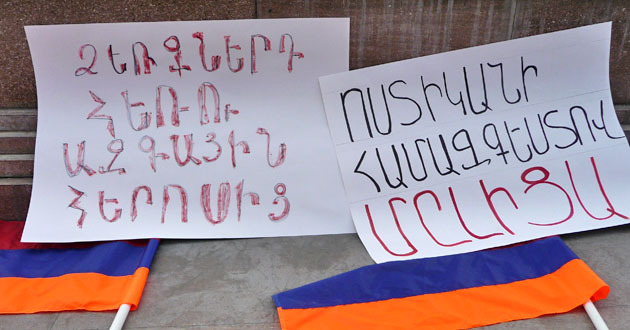 ՁԵՌՔՆԵՐԴ
ՀԵՌՈՒ
ԱԶԳԱՅԻՆ
ՀԵՐՈՍԻՑ
ՈՍՏԻԿԱՆԻ
ՀԱՄԱԶԳԵՍՏՈՎ
ՄԸԼԻՑԱ